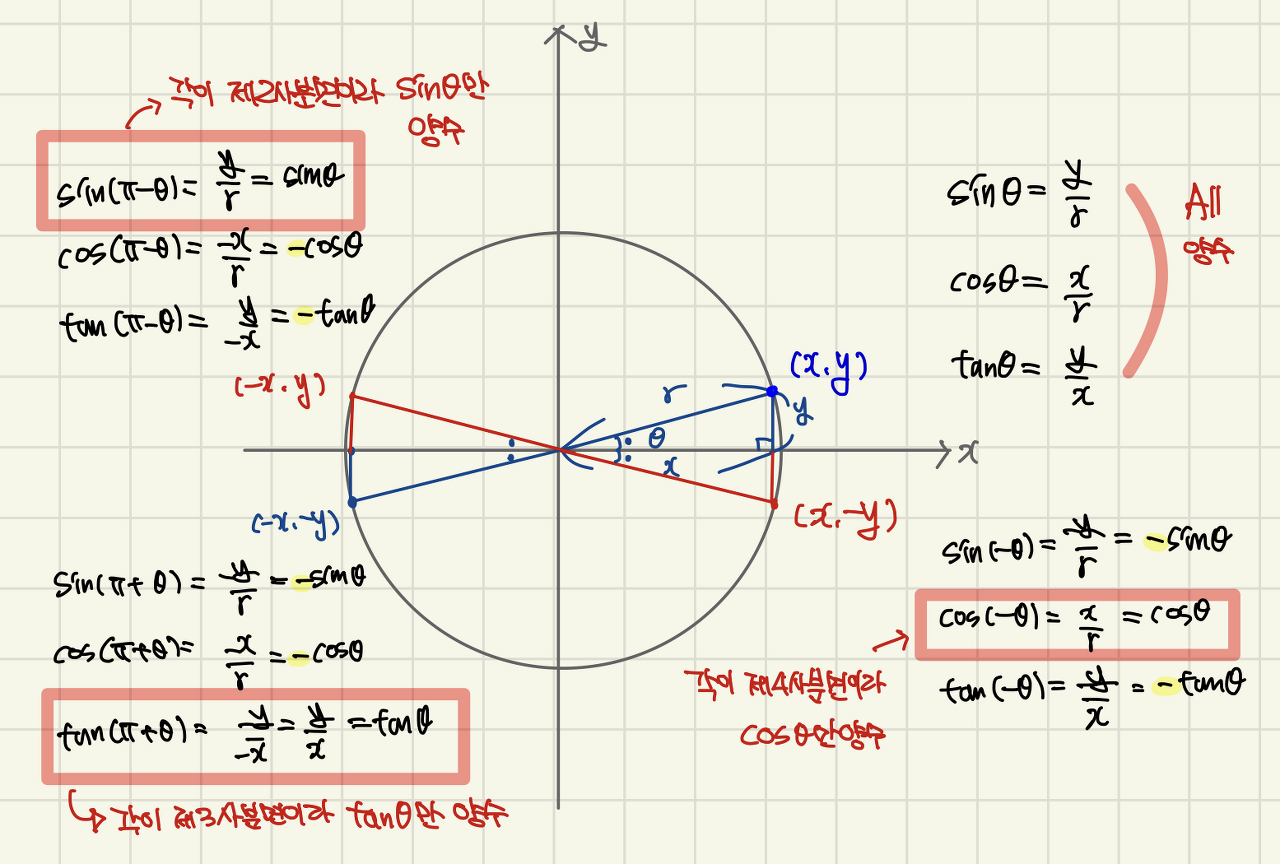 y
각이 제2사분면이라 sinθ만
양수
sin(π-θ)= y/r = sinθ
cos(π-θ)= -x/r = -cosθ
tan(π-θ)= y/-x = -tanθ
sinθ= y/r
cosθ= x/r
tanθ= y/x
All
양수
(-x, y)
(x, y)
r
y
θ
x
x
(-x, -y)
(x, -y)
sin(π+θ)= -y/r = -sinθ
cos(π+θ)= -x/r = -cosθ
tan(π+θ)= -y/-x = y/x = tanθ
각이 제3사분면이라 tanθ만 양수
sin(-θ)= -y/r = -sinθ
cos(-θ)= x/r = cosθ
tan(-θ)= -y/x = -tanθ
각이 제4사분면이라
cosθ만양수